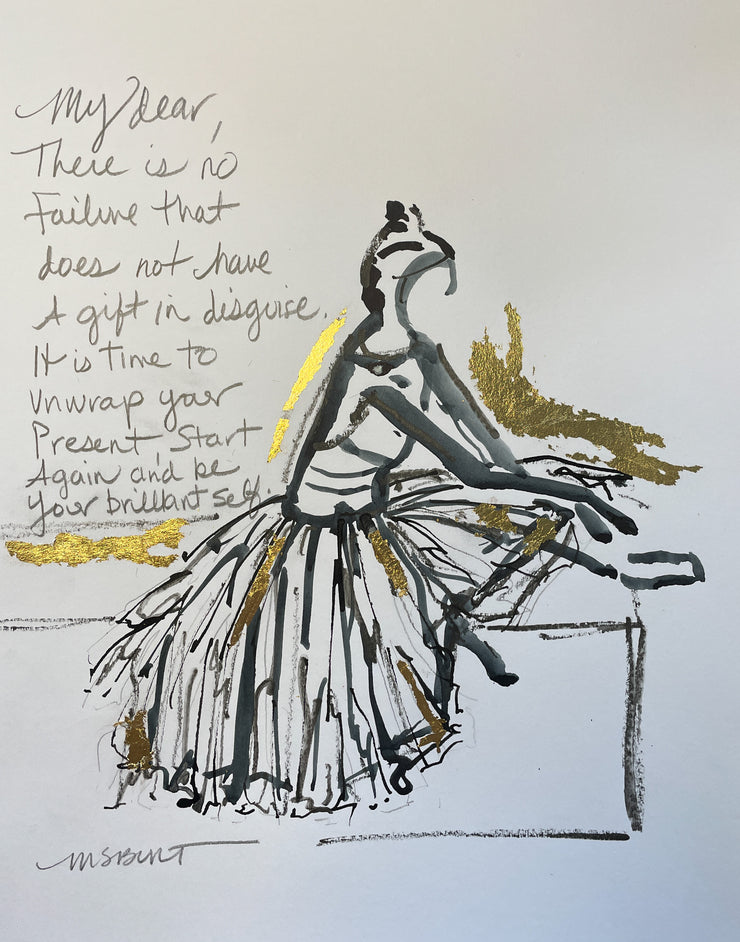 My dear,
There is no
Failure that
does not have
A gift in disguise.
It is time to
Unwrap your
Present, Start
Again and be
Your brilliant self